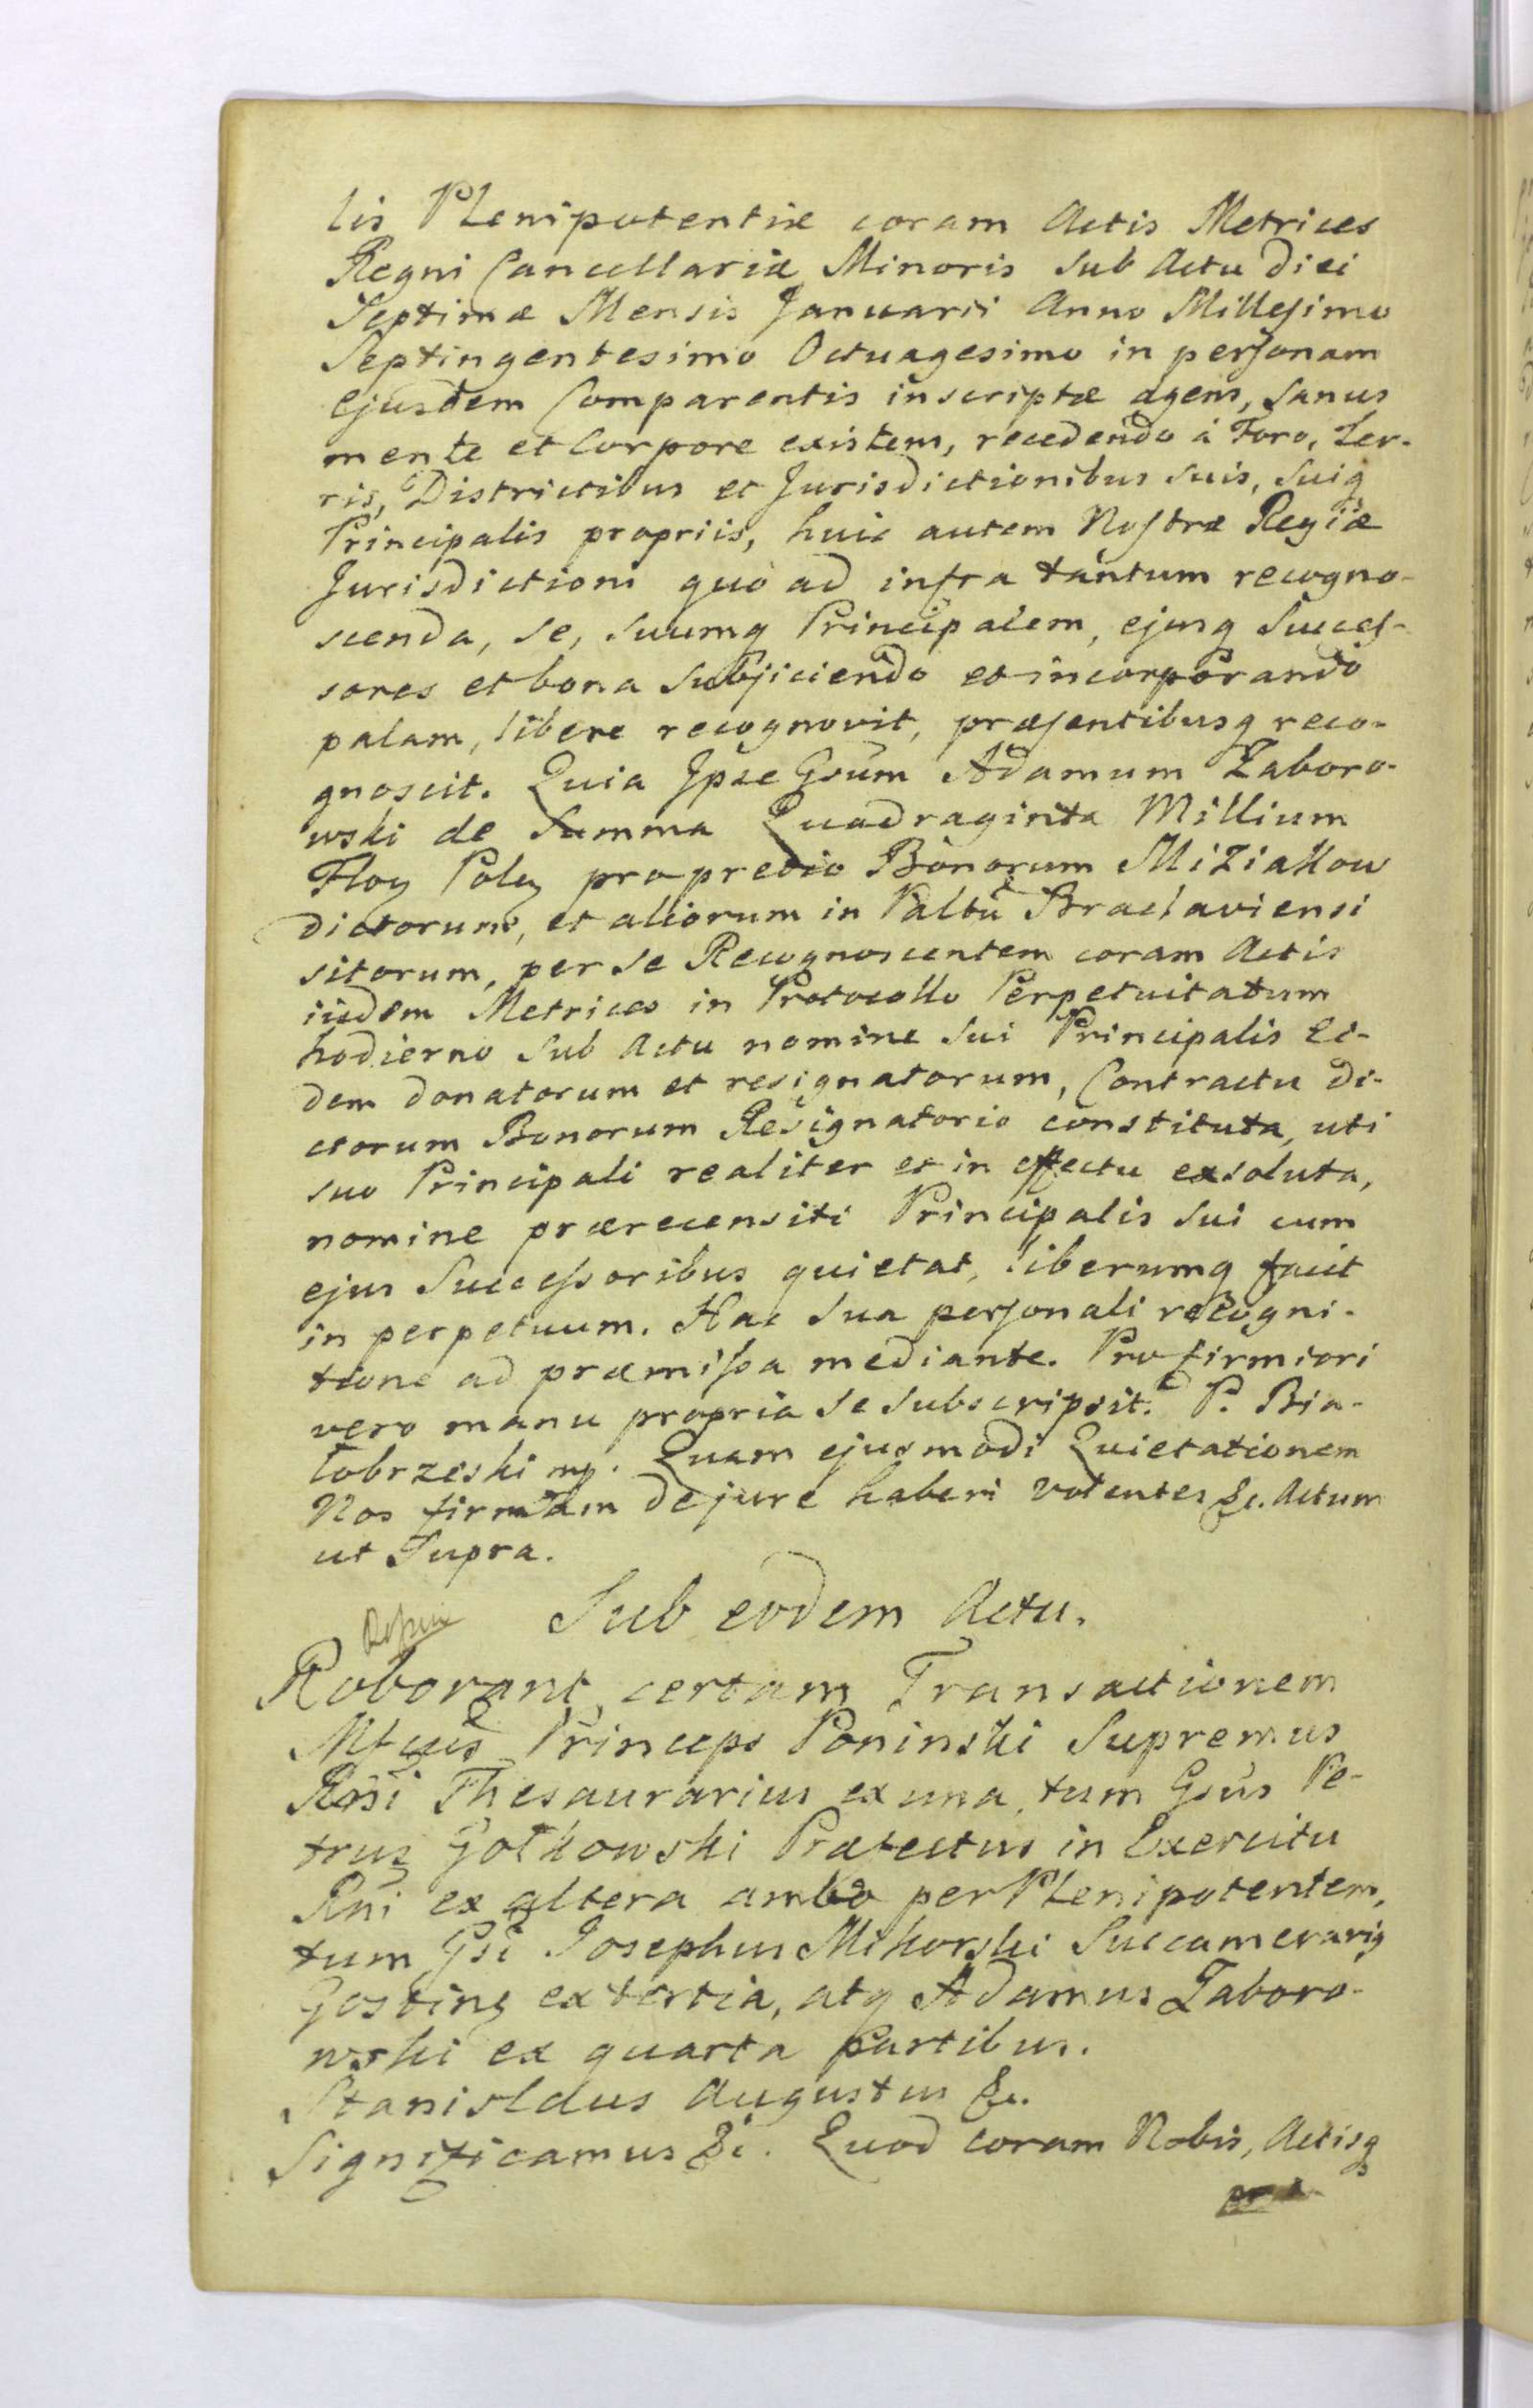 lis Plenipotentiæ coram Actis Metrices
Regni Cancellariæ Minoris Sub Actu diei
Septimæ Mensis Januarii Anno Millesimo
Septingentesimo Octuagesimo in personam
ejusdem Comparentis inscriptæ agens, Sanus
mente et Corpore existens, recedendo à Foro, Ter-
ris, Districtibus et Jurisdictionibus suis, suiq
Principalis propriis, huic autem Nostræ Regiæ
Jurisdictioni quò ad infra tantum recogno-
scenda, se, suumq Principalem, ejusq Succes-
sores et bona Subjiciendo et incorporando
palam, libere recognovit, præsentibusq reco-
gnoscit. Quia Ipse Gsum Adamum Zaboro-
wski de Summa Quadraginta Millium
Floq Polq pro pretio Bonorum Miziakow
dictorum, et aliorum in Palttu Braclaviensi
sitorum, per se Recognoscentem coram Actis
iisdem Metrices in Protocollo Perpetuitatum
hodierno Sub Actu nomine Sui Principalis Ei-
dem donatorum et resignatorum, Contractu di-
ctorum Bonorum Resignatorio constituta, uti
suo Principali realiter et in effectu exsoluta,
nomine prærecensiti Principalis Sui cum
ejus Successoribus quietat, liberumq facit
in perpetuum. Hac Sua personali recogni-
tione ad præmissa mediante. Pro firmiori
vero manu propria se subscripsit. P. Bia-
łobrzeski mp. Quam ejusmodi Quietationem
Nos firmam de jure haberi volentes &c. Actum
ut Supra.
Sub eodem Actu.
Roborant certam Transactionem
Princeps Poninski Supremus
Rñi Thesaurarius ex una, tum Gsus Pe-
trus Gołkowski Præfectus in Exercitu
Rñi ex altera ambo per Plenipotentem,
tum Gsi Josephus Mikorski Succamerariq
Gostinq ex tertia, atq Adamus Zaboro-
wski ex quarta partibus.
Stanislaus Augustus &c.
Significamus &c. Quod coram Nobis, Actisq